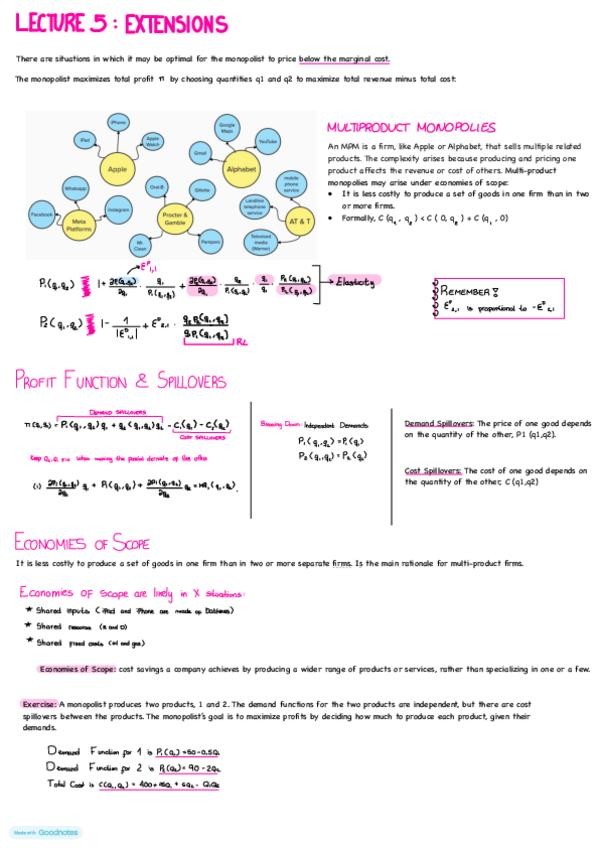 LECTURE 5: EXTENSIONS
There are situations in which it may be optimal for the monopolist to price below the marginal cost.
The monopolist maximizes total profit π by choosing quantities q1 and q2 to maximize total revenue minus total cost:
iPhone
iPad
Apple Watch
Apple
Google Maps
YouTube
Gmail
Alphabet
Whatsapp
Facebook
Instagram
Meta Platforms
Oral-B
Gillette
Mr. Clean
Pampers
Procter & Gamble
mobile phone service
Landline telephone service
Televised media (Warner)
AT & T
MULTIPRODUCT MONOPOLIES
An MPM is a firm, like Apple or Alphabet, that sells multiple related
products. The complexity arises because producing and pricing one
product affects the revenue or cost of others. Multi-product
monopolies may arise under economies of scope:
• It is less costly to produce a set of goods in one firm than in two
or more firms.
• Formally, C (q₁ , q₂ ) < C ( 0, q₂ ) + C (q₁ , 0)
Elasticity
REMEMBER!
is proportional to
PROFIT FUNCTION & SPILLOVERS
DEMAND SPILLOVERS
COST SPILLOVERS
Independent Demands
P₁(q₁,q₂) = P₁(q₁)
P₂(q₁,q₂) = P₂(q₂)
Demand Spillovers: The price of one good depends
on the quantity of the other, P1 (q1,q2).
Cost Spillovers: The cost of one good depends on
the quantity of the other, C (q1,q2)
ECONOMIES OF SCOPE
It is less costly to produce a set of goods in one firm than in two or more separate firms. Is the main rationale for multi-product firms.
Economies of Scope are likely in X situations:
★ Shared inputs (iPad and iPhone are made of
★ Shared resource (R and D)
★ Shared fixed costs (oil and gas)
Economies of Scope: cost savings a company achieves by producing a wider range of products or services, rather than specializing in one or a few.
Exercise: A monopolist produces two products, 1 and 2. The demand functions for the two products are independent, but there are cost
spillovers between the products. The monopolist's goal is to maximize profits by deciding how much to produce each product, given their
demands.
Demand Function for 1 is
Demand Function for 2 is P₂(Q₂) = 90 - 2Q₂
Total Cost is
Made with Goodnotes